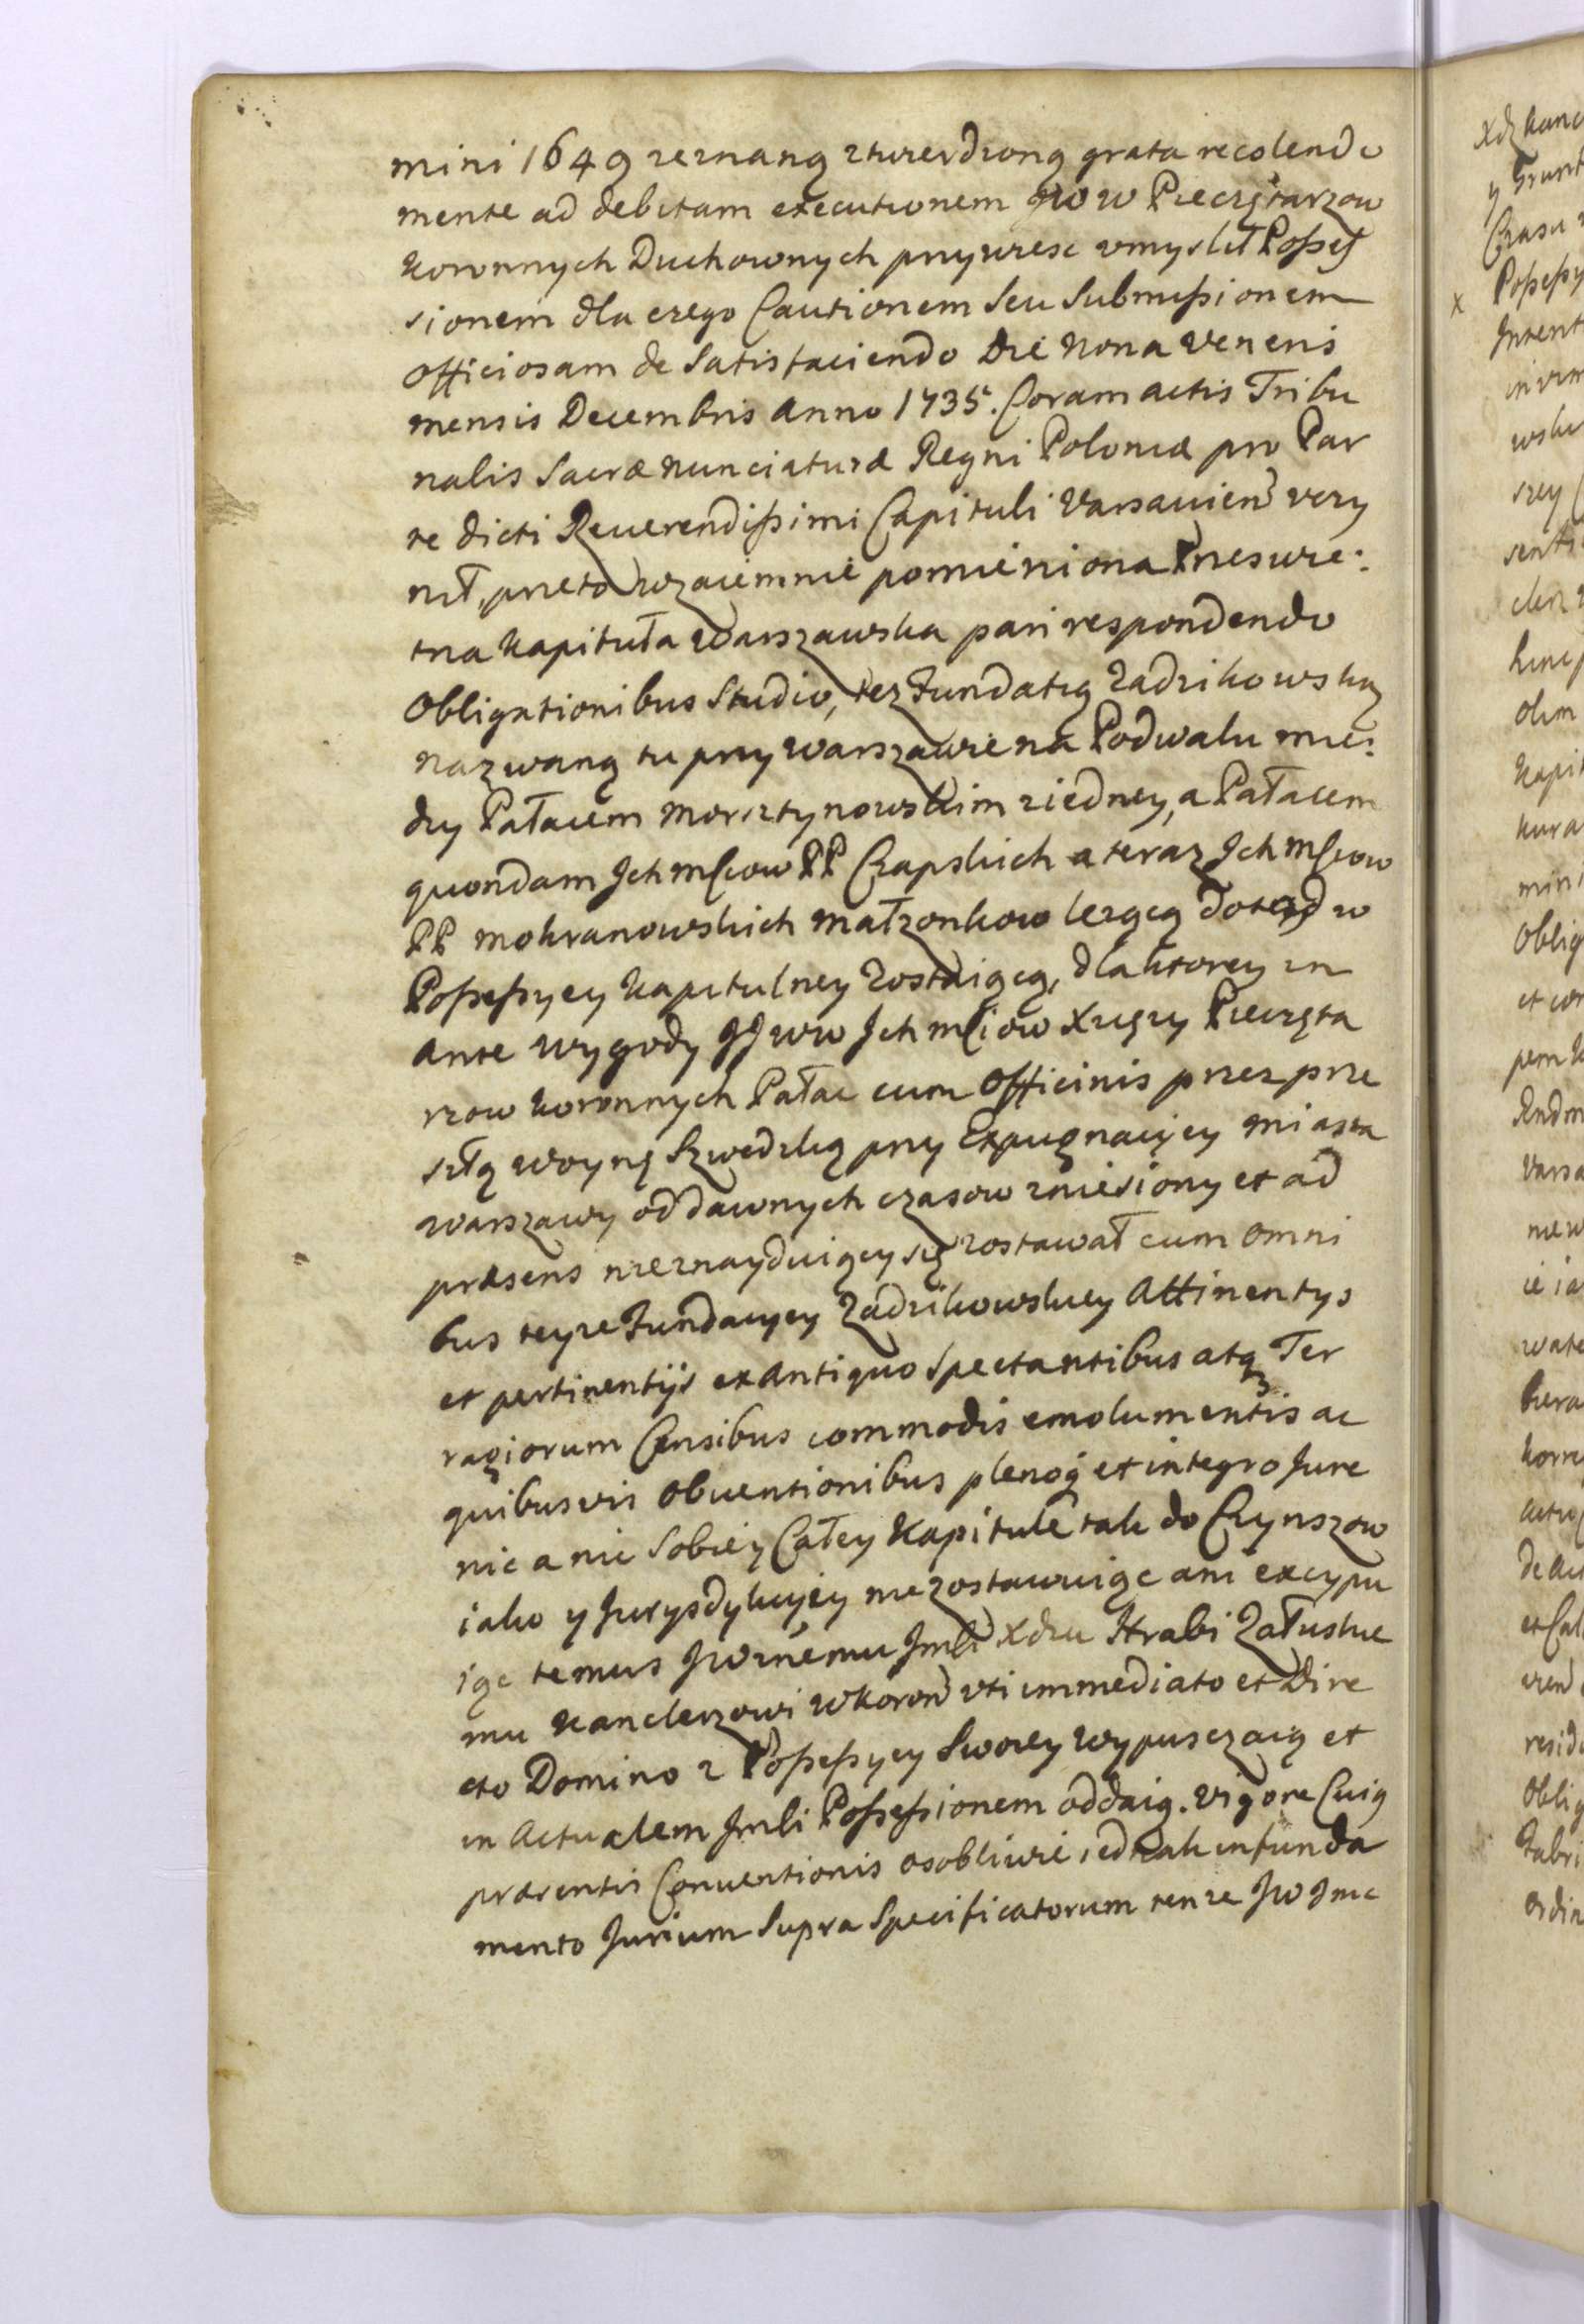 mini 1649 zeznaną ztwierdzoną grata recolendo
mente ad debitam executionem JWW Pieczętarzow
koronnych Duchownych przywiesc vmyslił Possess
sionem dla czego Cautionem seu submissionem
officiosam de satisfaciendo Die nona Veneris
mensis Decembris Anno 1735. Coram actis Tribu
nalis Sacræ nunciaturæ Regni Poloniæ pro Par
te dicti Reuerendissimi Capituli Varsauien vczy
nił, przeto wzaiemnie pomieniona Przeswie:
tna kapituła Warszawska pari respondendo
Obligationibus Studio, tez Fundatią Zadzikowską
nazwaną tu przy Warszawie na Podwalu mie:
dzy Pałacem Morsztynowskim ziedney, a Pałacem
quondam Jchmściow PP Czapskich a teraz Jchmściow
PP Mokranowskich małzonkow lezącą dotąd w
Possessyey kapitulney zostaiącą, dla ktorey in
ante wygody JJWW Jchmściow Xięzy Pieczęta
rzow koronnych Pałac cum Officinis przez prze
szłą woynę Szwedzką przy Expugnacyey miasta
Warszawy od dawnych czasow zniesiony et ad
præsens nieznayduiący się zostawał cum omni
bus teyze Fundacyey Zadzikowskiey Attinentys
et pertinentijs ex antiquo spectantibus atq Ter
ragiorum Censibus commodis emolumentis ac
quibusvis obuentionibus pleno et integro Jure
nic a nic sobie y Całey Kapitule tak do Czynszow
iako y Jurysdykcyey nie zostawuiąc ani excypu
iąc temus JWznemu Jmści Xdzu Hrabi Załuskie
mu kanclerzowi WKoron vti immediato et Dire
cto Domino z Possessyey Swoiey wypuszczaią et
in Actualem Jmści Possessionem oddaią. Vigore Cuią
præsentis Conuentionis osobliwie iednak in funda
mento Jurium supra specificatorum tenze JW Jmc